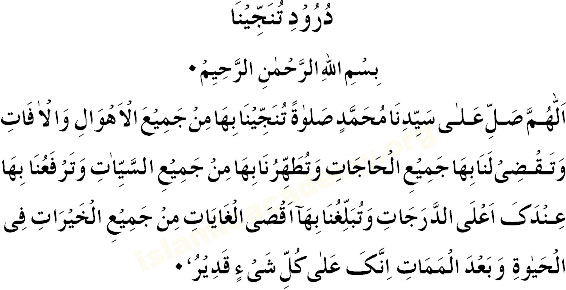 دُرُوْدِ تُنَجِّيْنَا
بِسْمِ اللهِ الرَّحْمٰنِ الرَّحِيْمِ ۰
اَللّٰهُمَّ صَلِّ عَـلٰى سَيِّدِنَا مُحَمَّدٍ صَلٰوةً تُنَجِّيْنَا بِهَا مِنْ جَمِيْعَ الْاَهْوَالِ وَالْاٰفَاتِ
وَتَـقْـضِىْ لَنَا بِهَا جَمِيْعَ الْحَاجَاتِ وَتُطَهِّرُنَا بِهَا مِنْ جَمِيْعِ السَّيِّاٰتِ وَتَرْفَعُنَا بِهَا
عِنْدَکَ اَعْلَى الدَّرَجَاتِ وَتُبَلِّغُنَا بِهَآ اَقْصَى الْغَايَاتِ مِنْ جَمِيْعِ الْخَيْرَاتِ فِى
الْحَيٰوةِ وَبَعْدَ الْمَمَاتِ اِنَّکَ عَلٰى كُلِّ شَىْءٍ قَدِيْرُ ۰